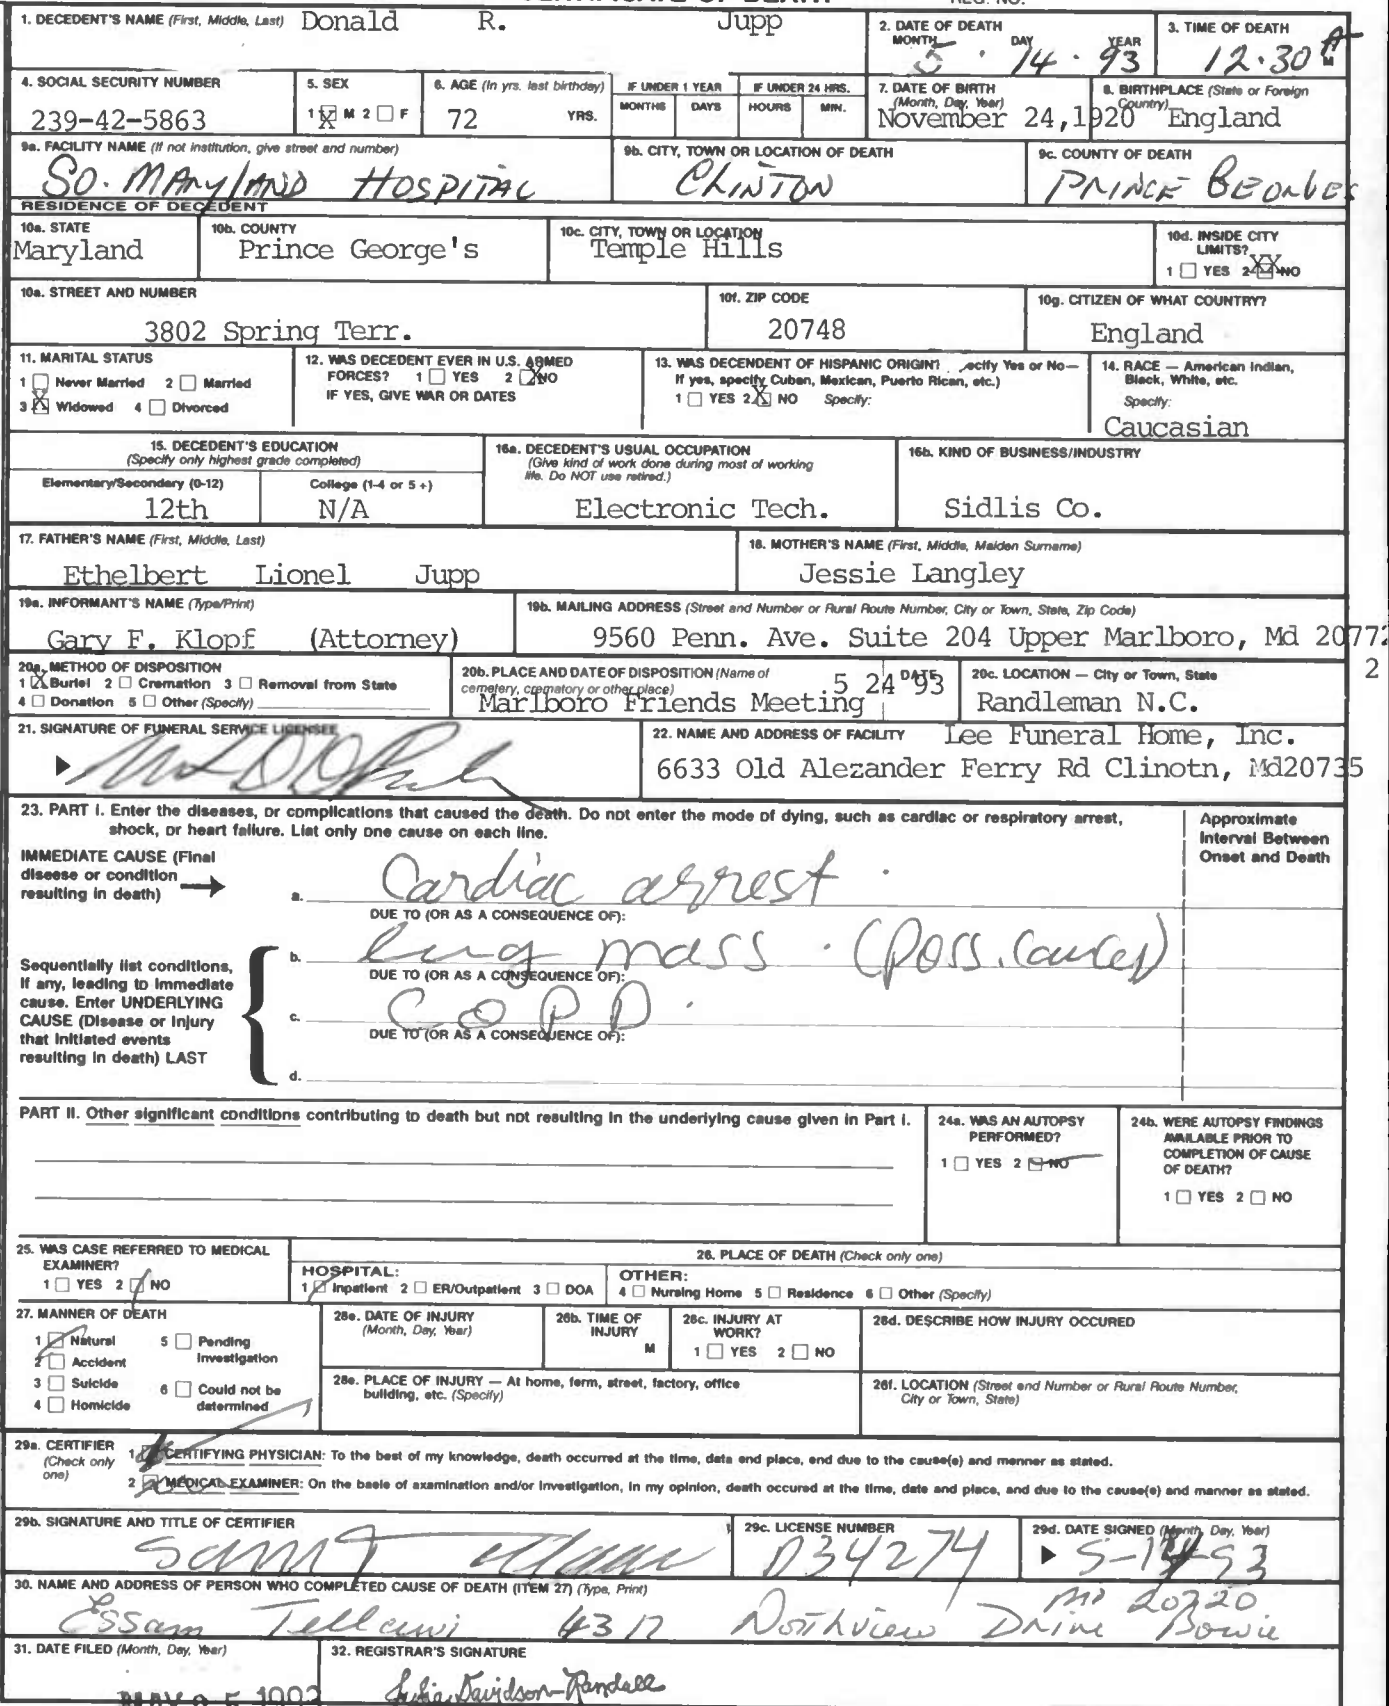 1. DECEDENT'S NAME (First, Middle, Last) Donald R. Jupp
2. DATE OF DEATH
MONTH DAY YEAR
5 · 14 · 93
3. TIME OF DEATH
12·30 A M
4. SOCIAL SECURITY NUMBER
239-42-5863
5. SEX
1 X M 2 □ F
6. AGE (In yrs. last birthday)
72 YRS.
IF UNDER 1 YEAR
MONTHS DAYS
IF UNDER 24 HRS.
HOURS MIN.
7. DATE OF BIRTH
(Month, Day, Year)
November 24,1920
8. BIRTHPLACE (State or Foreign
Country)
England
9a. FACILITY NAME (If not institution, give street and number)
SO. MARYLAND HOSPITAL
9b. CITY, TOWN OR LOCATION OF DEATH
CLINTON
9c. COUNTY OF DEATH
PRINCE GEORGES
RESIDENCE OF DECEDENT
10a. STATE
Maryland
10b. COUNTY
Prince George's
10c. CITY, TOWN OR LOCATION
Temple Hills
10d. INSIDE CITY
LIMITS?
1 □ YES 2 XX NO
10e. STREET AND NUMBER
3802 Spring Terr.
10f. ZIP CODE
20748
10g. CITIZEN OF WHAT COUNTRY?
England
11. MARITAL STATUS
1 □ Never Married 2 □ Married
3 X Widowed 4 □ Divorced
12. WAS DECEDENT EVER IN U.S. ARMED
FORCES? 1 □ YES 2 X NO
IF YES, GIVE WAR OR DATES
13. WAS DECENDENT OF HISPANIC ORIGIN? ecify Yes or No—
If yes, specify Cuban, Mexican, Puerto Rican, etc.)
1 □ YES 2 X NO Specify:
14. RACE — American Indian,
Black, White, etc.
Specify:
Caucasian
15. DECEDENT'S EDUCATION
(Specify only highest grade completed)
Elementary/Secondary (0-12) College (1-4 or 5 +)
12th N/A
16a. DECEDENT'S USUAL OCCUPATION
(Give kind of work done during most of working
life. Do NOT use retired.)
Electronic Tech.
16b. KIND OF BUSINESS/INDUSTRY
Sidlis Co.
17. FATHER'S NAME (First, Middle, Last)
Ethelbert Lionel Jupp
18. MOTHER'S NAME (First, Middle, Maiden Surname)
Jessie Langley
19a. INFORMANT'S NAME (Type/Print)
Gary F. Klopf (Attorney)
19b. MAILING ADDRESS (Street and Number or Rural Route Number, City or Town, State, Zip Code)
9560 Penn. Ave. Suite 204 Upper Marlboro, Md 20772
2
20a. METHOD OF DISPOSITION
1 X Burial 2 □ Cremation 3 □ Removal from State
4 □ Donation 5 □ Other (Specify)
20b. PLACE AND DATE OF DISPOSITION (Name of
cemetery, crematory or other place) DATE
5 24 93
Marlboro Friends Meeting
20c. LOCATION — City or Town, State
Randleman N.C.
21. SIGNATURE OF FUNERAL SERVICE LICENSEE
22. NAME AND ADDRESS OF FACILITY Lee Funeral Home, Inc.
6633 Old Alezander Ferry Rd Clinotn, Md20735
23. PART I. Enter the diseases, or complications that caused the death. Do not enter the mode of dying, such as cardiac or respiratory arrest,
shock, or heart failure. List only one cause on each line.
Approximate
Interval Between
Onset and Death
IMMEDIATE CAUSE (Final
disease or condition
resulting in death)
a. Cardiac arrest
DUE TO (OR AS A CONSEQUENCE OF):
b. lung mass (Poss. cancer)
DUE TO (OR AS A CONSEQUENCE OF):
c. COPD
DUE TO (OR AS A CONSEQUENCE OF):
d.
Sequentially list conditions,
if any, leading to immediate
cause. Enter UNDERLYING
CAUSE (Disease or injury
that initiated events
resulting in death) LAST
PART II. Other significant conditions contributing to death but not resulting in the underlying cause given in Part I.
24a. WAS AN AUTOPSY
PERFORMED?
1 □ YES 2 □ NO
24b. WERE AUTOPSY FINDINGS
AVAILABLE PRIOR TO
COMPLETION OF CAUSE
OF DEATH?
1 □ YES 2 □ NO
25. WAS CASE REFERRED TO MEDICAL
EXAMINER?
1 □ YES 2 □ NO
26. PLACE OF DEATH (Check only one)
HOSPITAL:
1 □ Inpatient 2 □ ER/Outpatient 3 □ DOA
OTHER:
4 □ Nursing Home 5 □ Residence 6 □ Other (Specify)
27. MANNER OF DEATH
1 □ Natural 5 □ Pending
Investigation
2 □ Accident
3 □ Suicide 6 □ Could not be
determined
4 □ Homicide
28a. DATE OF INJURY
(Month, Day, Year)
28b. TIME OF
INJURY
M
28c. INJURY AT
WORK?
1 □ YES 2 □ NO
28d. DESCRIBE HOW INJURY OCCURED
28e. PLACE OF INJURY — At home, farm, street, factory, office
building, etc. (Specify)
28f. LOCATION (Street and Number or Rural Route Number,
City or Town, State)
29a. CERTIFIER
(Check only
one)
1 □ CERTIFYING PHYSICIAN: To the best of my knowledge, death occurred at the time, data and place, and due to the cause(s) and manner as stated.
2 □ MEDICAL EXAMINER: On the basis of examination and/or investigation, in my opinion, death occured at the time, date and place, and due to the cause(s) and manner as stated.
29b. SIGNATURE AND TITLE OF CERTIFIER
29c. LICENSE NUMBER
D34274
29d. DATE SIGNED (Month, Day, Year)
5-14-93
30. NAME AND ADDRESS OF PERSON WHO COMPLETED CAUSE OF DEATH (ITEM 27) (Type, Print)
Essam Tellawi 4317 Northview Drive Bowie
MD 20720
31. DATE FILED (Month, Day, Year)
32. REGISTRAR'S SIGNATURE
Julia Davidson-Randall